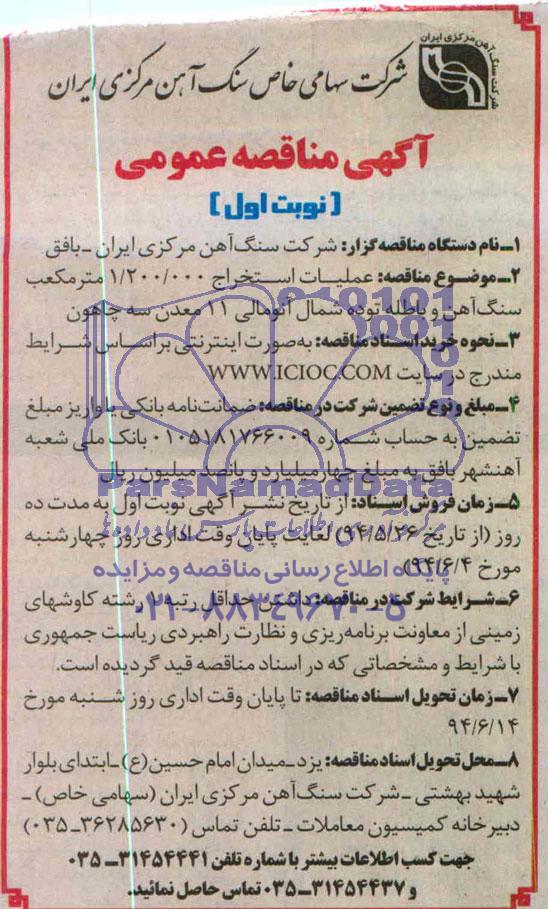 شرکت سنگ آهن مرکزی ایران
شرکت سهامی خاص سنگ آهن مرکزی ایران
آگهی مناقصه عمومی
(نوبت اول)
۱ـ نام دستگاه مناقصه گزار: شرکت سنگ‌آهن مرکزی ایران ـ بافق
۲ـ موضوع مناقصه: عملیات استخراج ۱/۲۰۰/۰۰۰ مترمکعب
سنگ‌آهن و باطله توده شمال آنومالی ۱۱ معدن سه چاهون
۳ـ نحوه خرید اسناد مناقصه: به‌صورت اینترنتی براساس شرایط
مندرج در سایت WWW.ICIOC.COM
۴ـ مبلغ و نوع تضمین شرکت در مناقصه: ضمانت‌نامه بانکی یا واریز مبلغ
تضمین به حساب شماره ۰۱۰۵۱۸۱۷۶۶۰۰۹ بانک ملی شعبه
آهنشهر بافق به مبلغ چهار میلیارد و پانصد میلیون ریال
ParsNamadData
۵ـ زمان فروش اسناد: از تاریخ نشر آگهی نوبت اول به مدت ده
روز (از تاریخ ۹۴/۵/۲۶) لغایت پایان وقت اداری روز چهارشنبه
مورخ ۹۴/۶/۴)
پایگاه اطلاع رسانی مناقصه و مزایده
۶ـ شرایط شرکت در مناقصه: داشتن حداقل رتبه رشته کاوشهای
۰۲۱-۸۸۳۴۹۶۷۰-۵
زمینی از معاونت برنامه‌ریزی و نظارت راهبردی ریاست جمهوری
با شرایط و مشخصاتی که در اسناد مناقصه قید گردیده است.
۷ـ زمان تحویل اسناد مناقصه: تا پایان وقت اداری روز شنبه مورخ
۹۴/۶/۱۴
۸ـ محل تحویل اسناد مناقصه: یزد ـ میدان امام حسین(ع) ـ ابتدای بلوار
شهید بهشتی ـ شرکت سنگ‌آهن مرکزی ایران (سهامی خاص) ـ
دبیرخانه کمیسیون معاملات ـ تلفن تماس (۳۶۲۸۵۶۳۰ـ۰۳۵)
جهت کسب اطلاعات بیشتر با شماره تلفن ۳۱۴۵۴۴۴۱ـ۰۳۵
و ۳۱۴۵۴۴۳۷ـ۰۳۵ تماس حاصل نمائید.